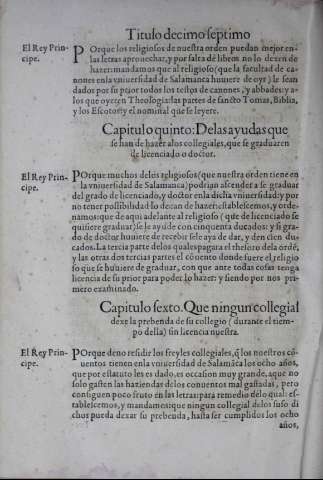 Titulo decimo septimo
El Rey Prin-
cipe.
POrque los religiosos de nuestra orden puedan mejor en
las letras aprouechar, y por falta de libros no lo dexen de
hazer: mandamos que al religioso (que la facultad de ca-
nones en la vniuersidad de Salamanca huuiere de oyr) le sean
dados por su prior todos los testos de canones, y abbades: y a
los que oyeren Theologia: las partes de sancto Tomas, Biblia,
y los Escotos: y el nominal que se leyere.
Capitulo quinto: De las ayudas que
se han de hazer a los collegiales, que se graduaren
de licenciado o doctor.
El Rey Prin-
cipe.
POrque muchos de los religiosos (que nuestra orden tiene en
la vniuersidad de Salamanca) podrian ascender a se graduar
del grado de licenciado, y doctor en la dicha vniuersidad: y por
no tener possibilidad lo dexan de hazer: establescemos, y orde-
namos: que de aqui adelante al religioso (que de licenciado se
quisiere graduar) se le ayude con cinquenta ducados: y si gra-
do de doctor huuiere de recebir se le aya de dar, y den cien du-
cados. La tercia parte de los quales pagura el thesoro dela ordē,
y las otras dos tercias partes el cōuento donde fuere el religio
so que se huuiere de graduar, con que ante todas cosas tenga
licencia de su prior para poder lo hazer: y siendo por nos pri-
mero examinado.
Capitulo sexto. Que ningun collegial
dexe la prebenda de su collegio (durante el tiem-
po della) sin licencia nuestra.
El Rey Prin-
cipe.
POrque deno residir los freyles collegiales, q̄ los nuestros cō-
uentos tienen en la vniuersidad de Salamāca los ocho años,
que por estatuto les es dado, es occasion muy grande, aque no
solo gasten las haziendas delos conuentos mal gastadas, pero
consiguen poco fruto en las letras: para remedio delo qual: es-
tablescemos, y mandamos: que ningun collegial de los suso di
chos pueda dexar su prebenda, hasta ser cumplidos los ocho
años,